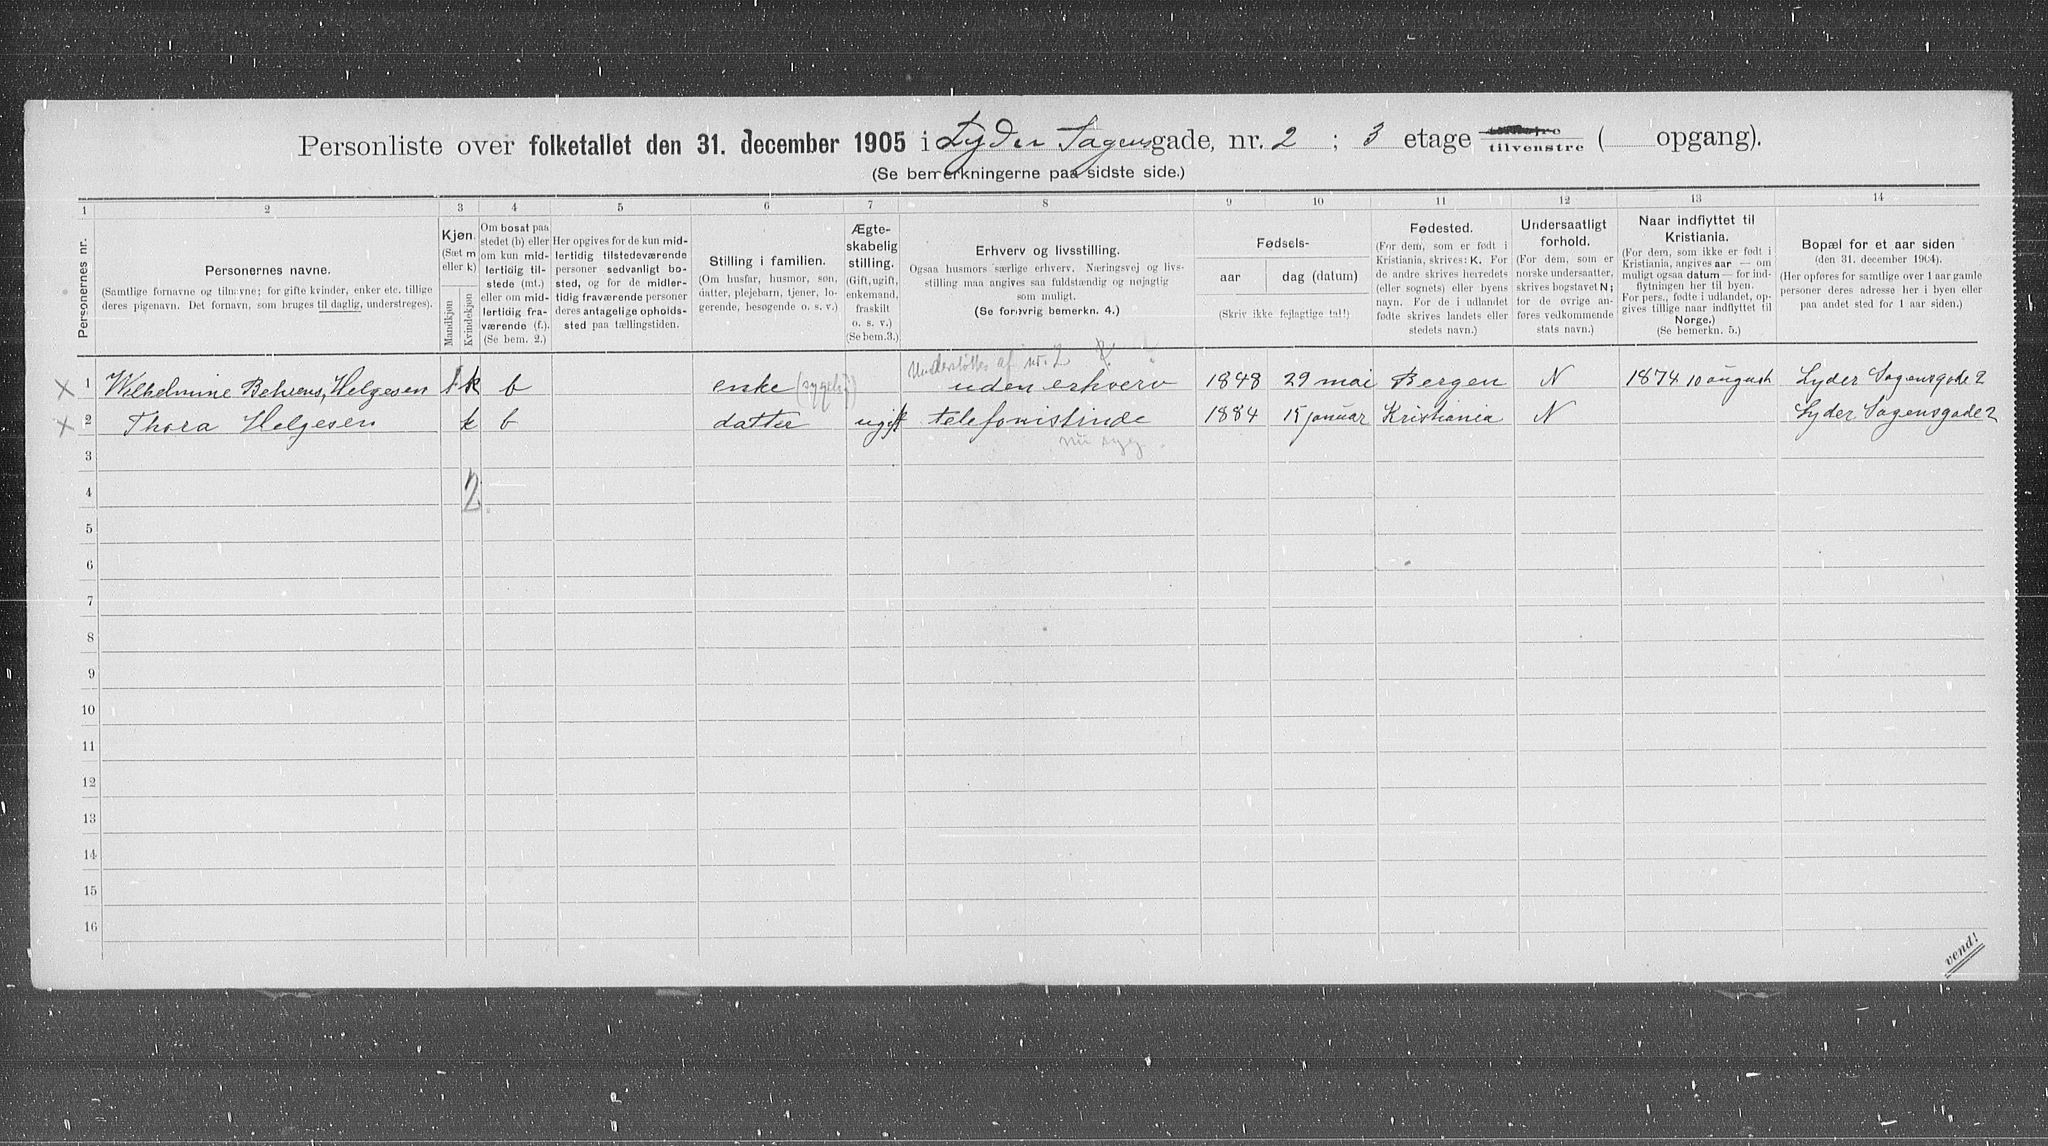 Personliste over folketallet den 31. december 1905 i Lyder Sagensgade, nr. 2 ; 3 etage tilvenstre ( opgang).
(Se bemerkningerne paa sidste side.)
1 2 3 4 5 6 7 8 9 10 11 12 13 14
Personernes nr.
Personernes navne.
(Samtlige fornavne og tilnavne; for gifte kvinder, enker etc. tillige
deres pigenavn. Det fornavn, som bruges til daglig, understreges).
Kjøn.
(Sæt m
eller k)
Mandkjøn
Kvindekjøn
Om bosat paa
stedet (b) eller
om kun mid-
lertidig til-
stede (mt.)
eller om mid-
lertidig fra-
værende (f.).
(Se bem. 2.)
Her opgives for de kun mid-
lertidig tilstedeværende
personer sedvanligt bo-
sted, og for de midler-
tidig fraværende personer
deres antagelige opholds-
sted paa tællingstiden.
Stilling i familien.
(Om husfar, husmor, søn,
datter, plejebarn, tjener, lo-
gerende, besøgende o. s. v.)
Ægte-
skabelig
stilling.
(Gift, ugift,
enkemand,
fraskilt
o. s. v.)
(Se bem.3.)
Erhverv og livsstilling.
Ogsaa husmors særlige erhverv. Næringsvej og livs-
stilling maa angives saa fuldstændig og nøjagtig
som muligt.
(Se forøvrig bemerkn. 4.)
Fødsels-
aar dag (datum)
(Skriv ikke fejlagtige tal!)
Fødested.
(For dem, som er født i
Kristiania, skrives: K. For
de andre skrives herredets
(eller sognets) eller byens
navn. For de i udlandet
fødte skrives landets eller
stedets navn.)
Undersaatligt
forhold.
(For dem, som er
norske undersaatter,
skrives bogstavet N;
for de øvrige an-
føres vedkommende
stats navn.)
Naar indflyttet til
Kristiania.
(For dem, som ikke er født i
Kristiania, angives aar — om
muligt ogsaa datum — for ind-
flytningen her til byen.
For pers., fødte i udlandet, op-
gives tillige naar indflyttet til
Norge.)
(Se bemerkn. 5.)
Bopæl for et aar siden
(den 31. december 1904).
(Her opføres for samtlige over 1 aar gamle
personer deres adresse her i byen eller
paa andet sted for 1 aar siden.)
Understøttes af nr. 2
x 1 Wilhelmine Behrens, Helgesen k b enke uden erhverv 1848 29 mai Bergen N 1874 10 august Lyder Sagensgade 2
x 2 Thora Helgesen k b datter ugift telefonistinde 1884 15 januar Kristiania N Lyder Sagensgade 2
nu syg.
3
4 2
5
6
7
8
9
10
11
12
13
14
15
16
vend!